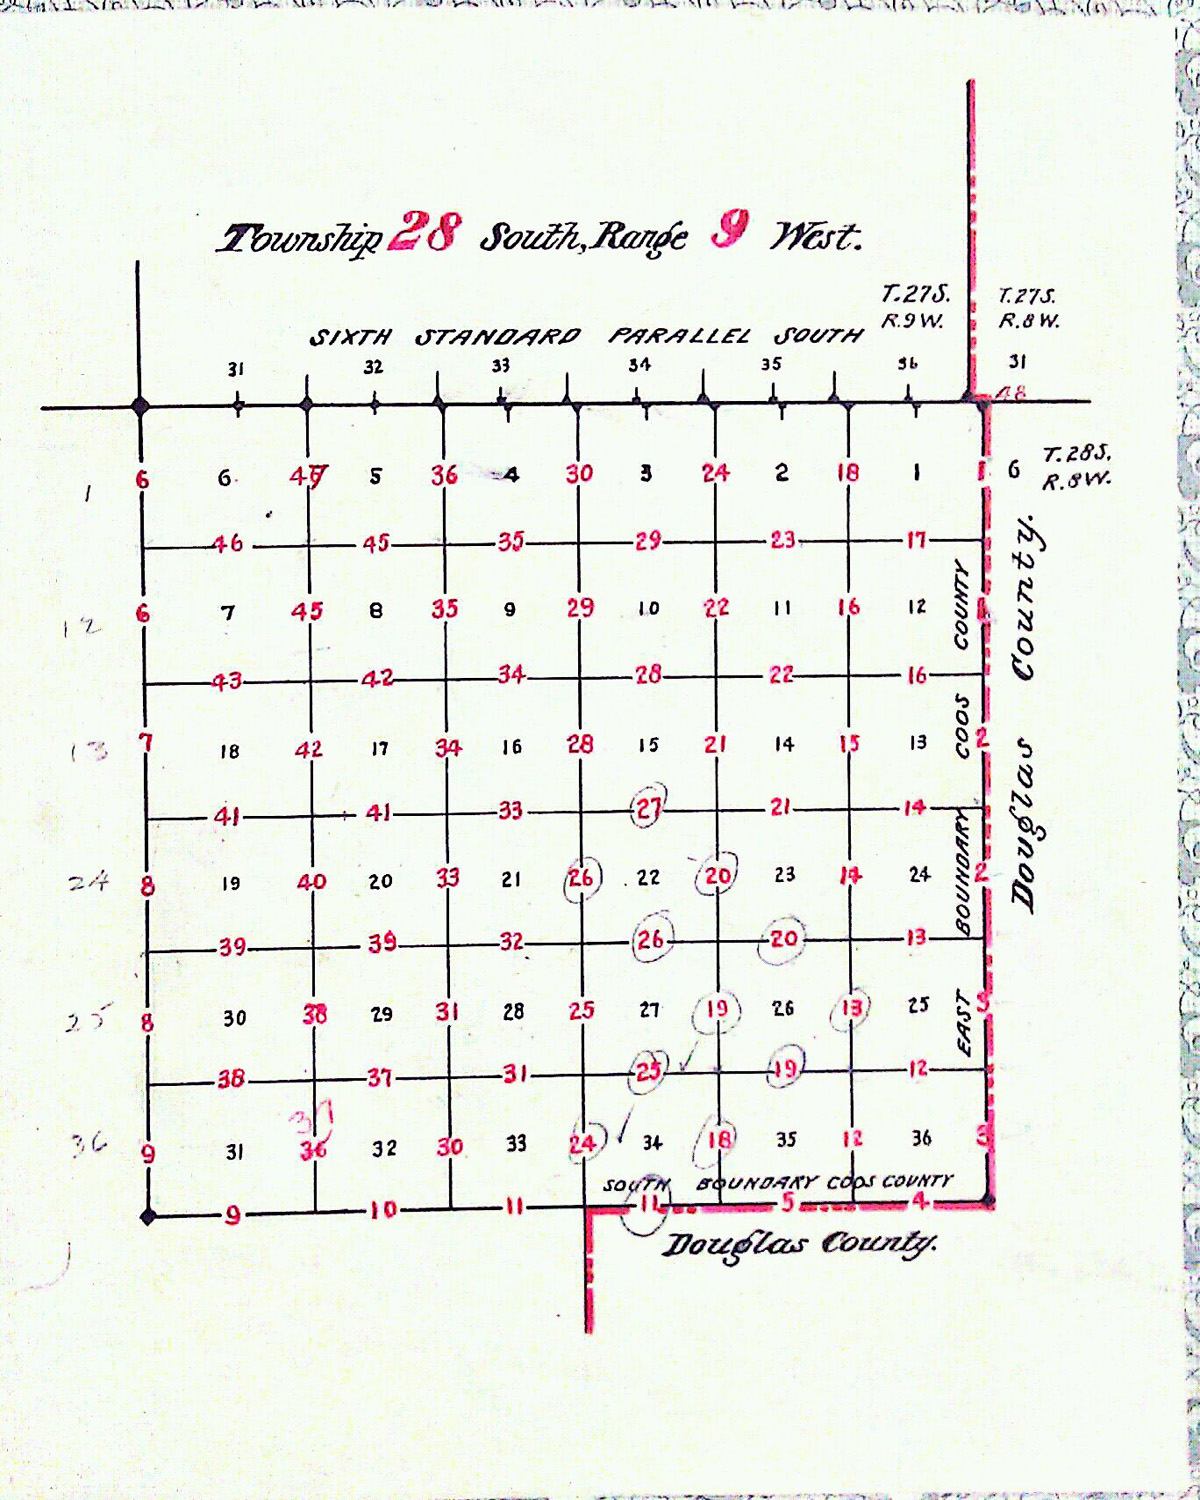 Township 28 South, Range 9 West.
T.27S. T.27S.
R.9W. R.8W.
SIXTH STANDARD PARALLEL SOUTH
31 32 33 34 35 36 31
48
1 6 6 5 36 4 30 3 24 2 18 1 1 6 T.28S.
R.8W.
46 45 35 29 23 17
12 6 7 45 8 35 9 29 10 22 11 16 12
43 42 34 28 22 16
13 7 18 42 17 34 16 28 15 21 14 15 13 2
41 41 33 27 21 14
24 8 19 40 20 33 21 26 22 20 23 14 24 2
39 39 32 26 20 13
25 8 30 38 29 31 28 25 27 19 26 13 25 3
38 37 31 25 19 12
37
36 9 31 36 32 30 33 24 34 18 35 12 36 3
SOUTH BOUNDARY COOS COUNTY
9 10 11 11 5 4
EAST BOUNDARY COOS COUNTY
Douglas County.
Douglas County.